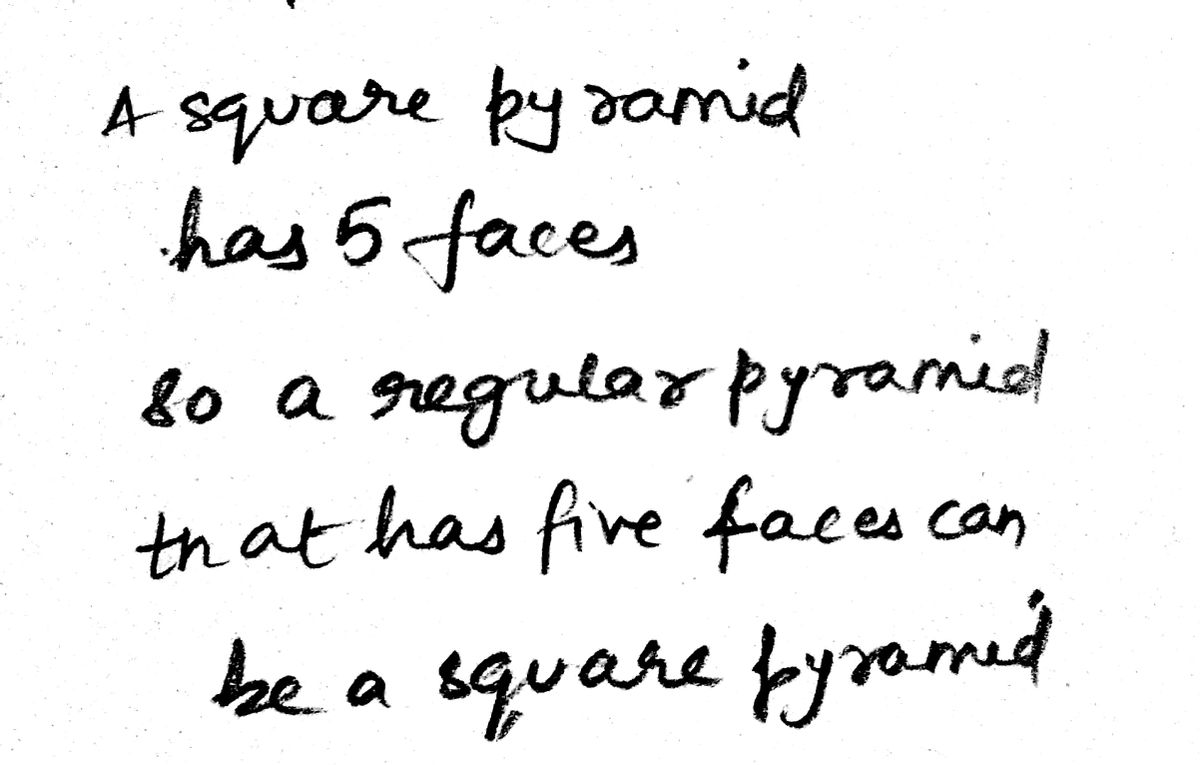 A square pyramid
has 5 faces
so a regular pyramid
that has five faces can
be a square pyramid